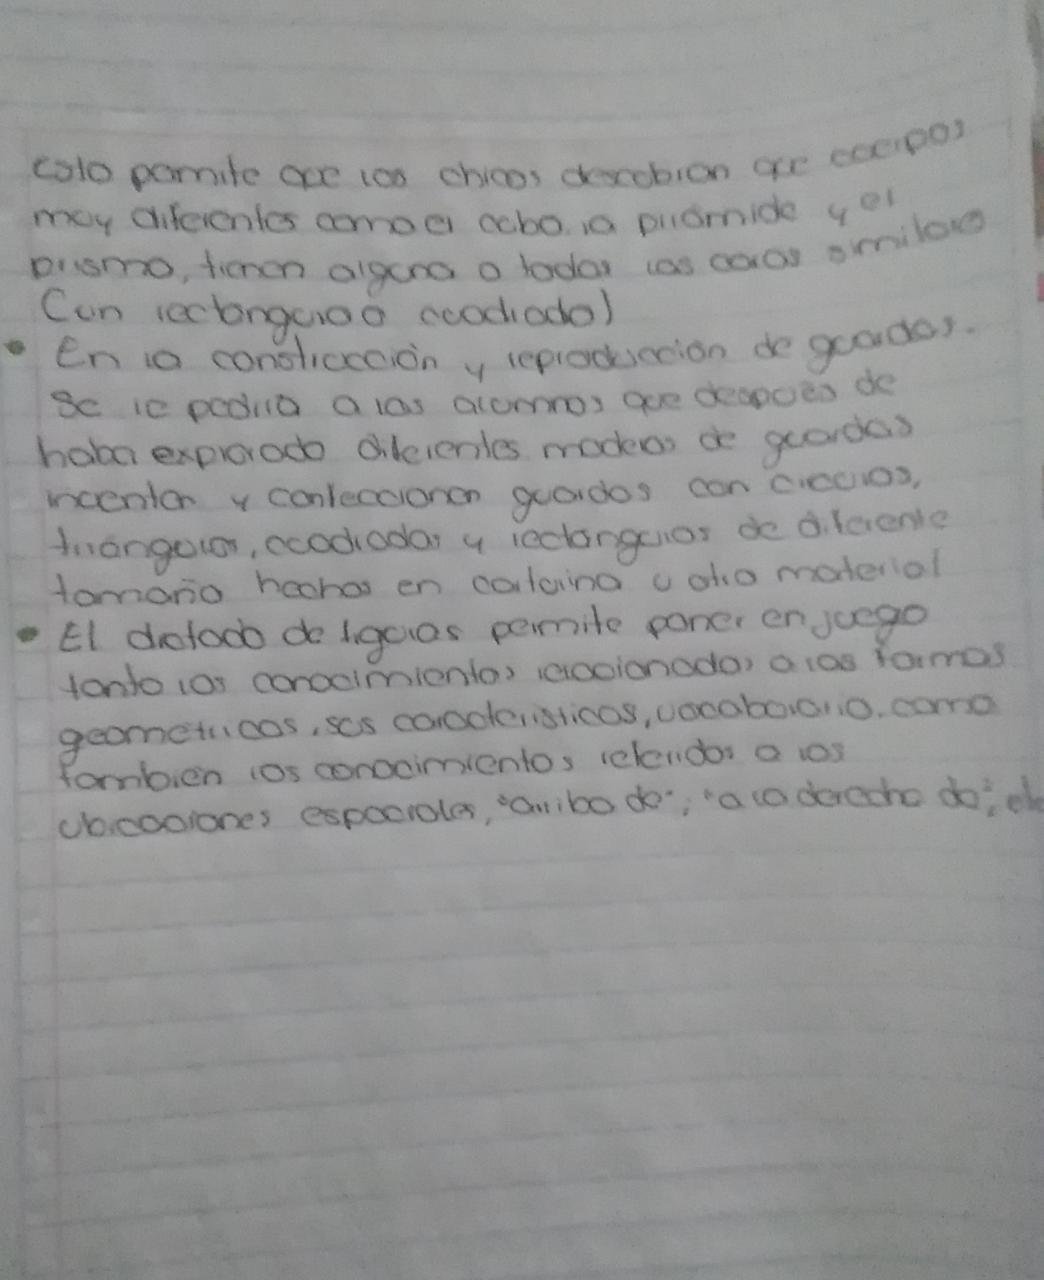 esto permite que los chicos descubran que cuerpos
muy diferentes como el cubo, la pirámide y el
prisma, tienen alguna o todas las caras similares
(un rectangulo o cuadrado)
• En la construcción y reproducción de guardas.
Se le pedirá a los alumnos que después de
haber explorado diferentes modelos de guardas
inventen y confeccionen guardas con circulos,
triángulos, cuadrados y rectángulos de diferente
tamaño hechos en cartulina u otro material
• El dictado de figuras permite poner en juego
tanto los conocimientos relacionados a las formas
geometricas, sus caracteristicas, vocabulario, como
tambien los conocimientos referidos a las
ubicaciones espaciales, "arriba de"; "a la derecha de"; etc